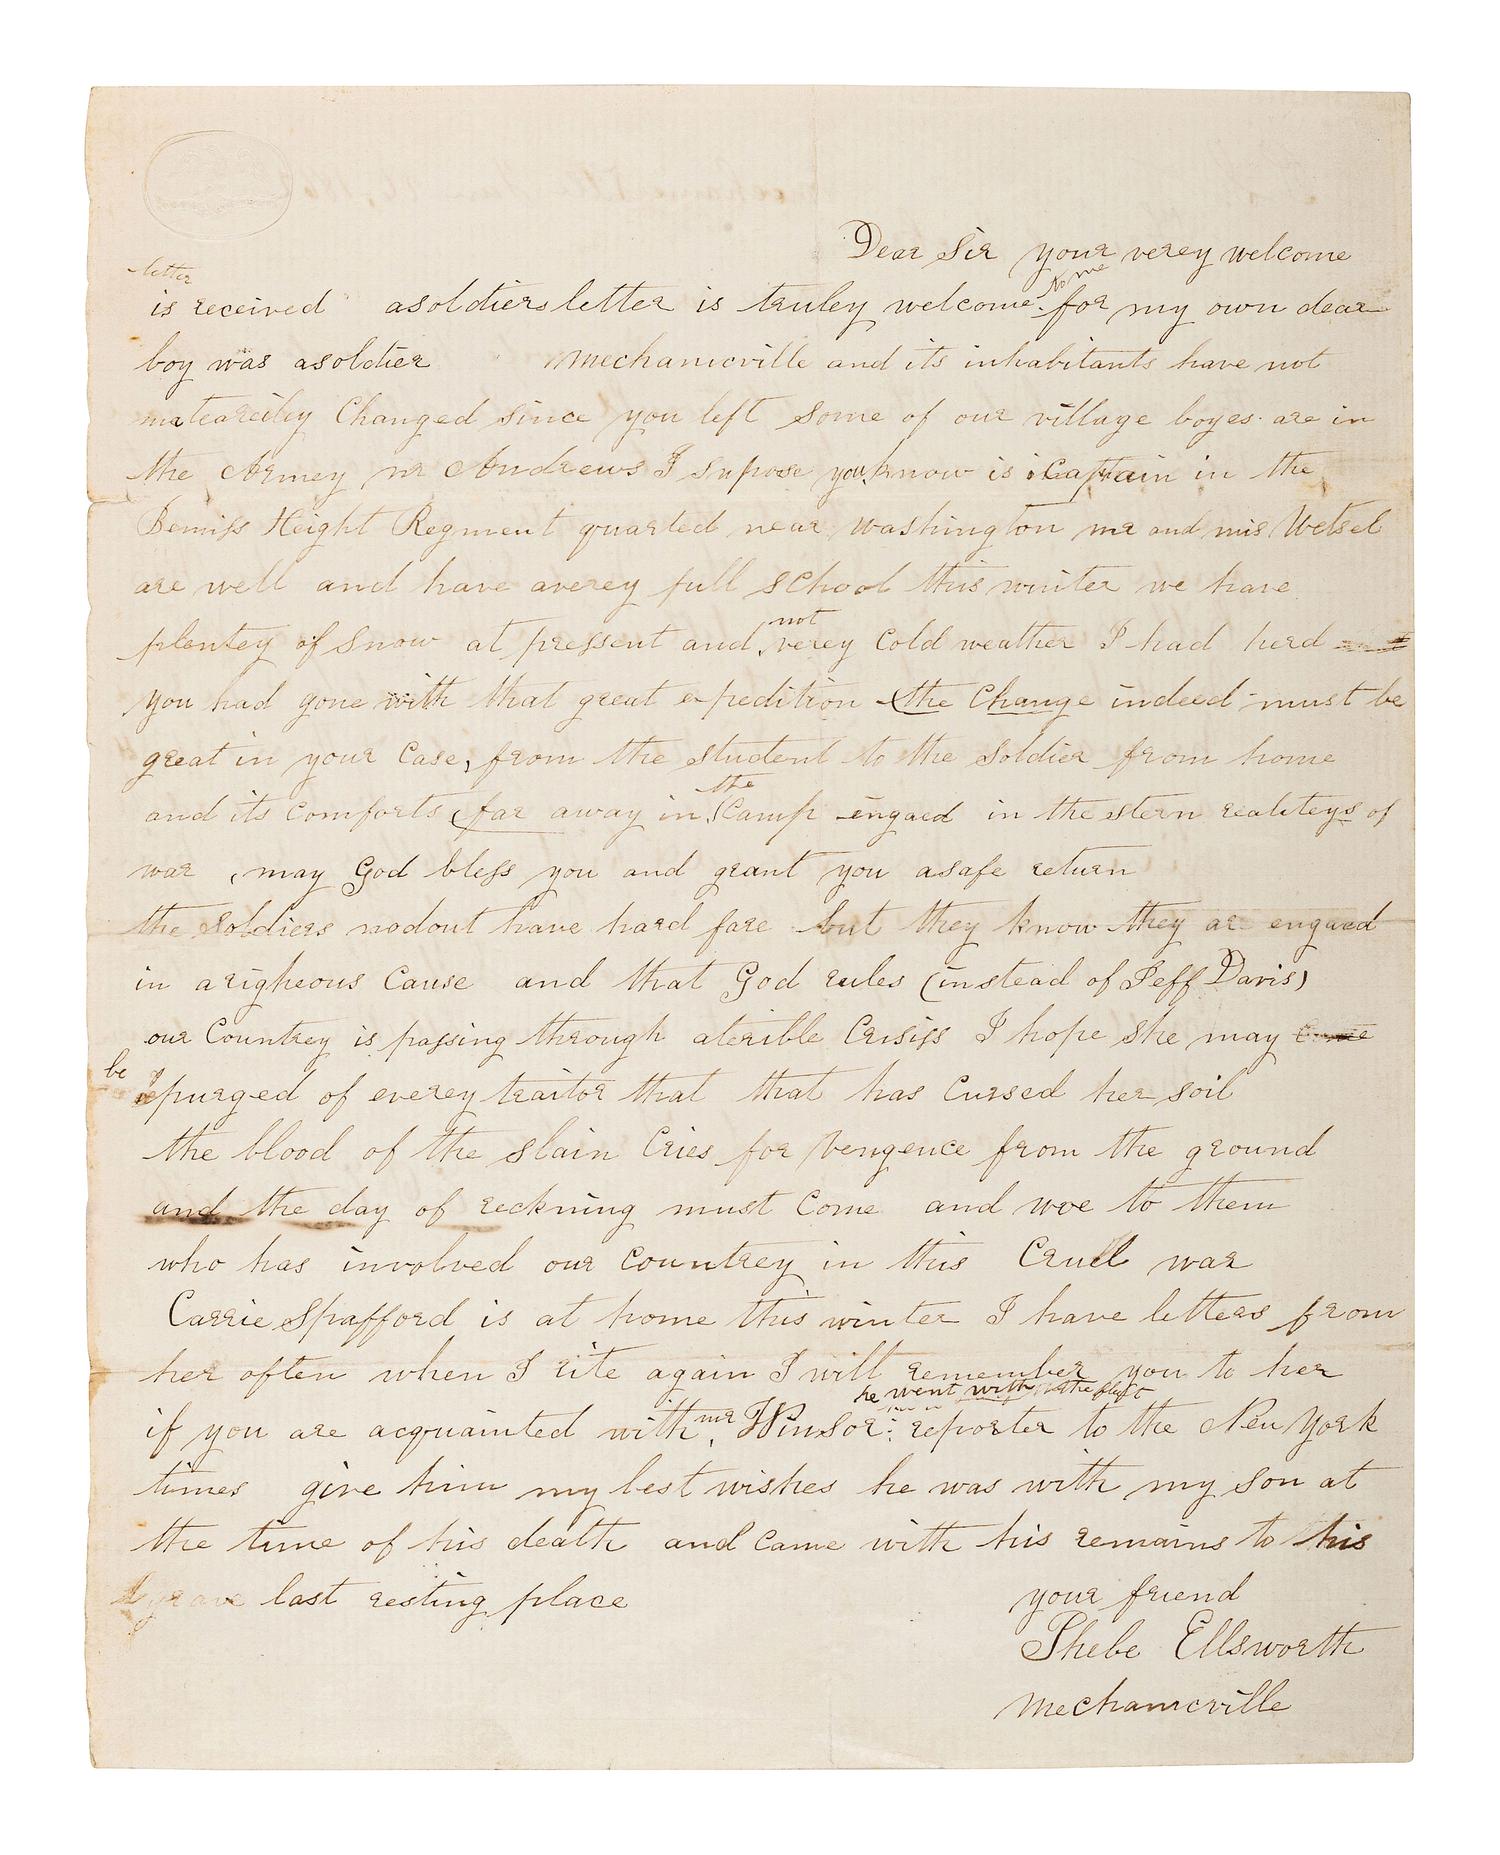 Dear Sir your verey welcome
letter
is received asoldiers letter is truley welcome to me for my own dear
boy was asoldier Mechanicville and its inhabitants have not
mateareiley Changed since you left Some of our village boyes are in
the Armey mr Andrews I Supose you know is Captain in the
Bemiss Height Regment quarted near washington mr and mis Wetsel
are well and have averey full School this winter we have
not
plentey of Snow at pressent and verey Cold weather I had herd
you had gone with that great expedition the Change indeed must be
great in your Case, from the student to the Soldier from home
the
and its Comforts far away in Camp engaed in the stern realiteys of
war , may God bless you and grant you asafe return
the Soldiers nodout have hard fare but they know they ar engaed
in arigheous Cause and that God rules (instead of Jeff Davis)
our Countrey is passing through aterible Crisiss I hope She may
be
epurged of everey traitor that that has Cursed her soil
the blood of the slain Cries for vengence from the ground
and the day of reckning must Come and woe to them
who has involved our Countrey in this Cruel war
Carrie Spafford is at home this winter I have letters from
her often when I rite again I will remember you to her
he went with the fleet
if you are acquainted with mr Winsor reporter to the New York
times give him my best wishes he was with my son at
the time of his death and Came with his remains to his
grave last resting place
your friend
Phebe Ellsworth
Mechanicville